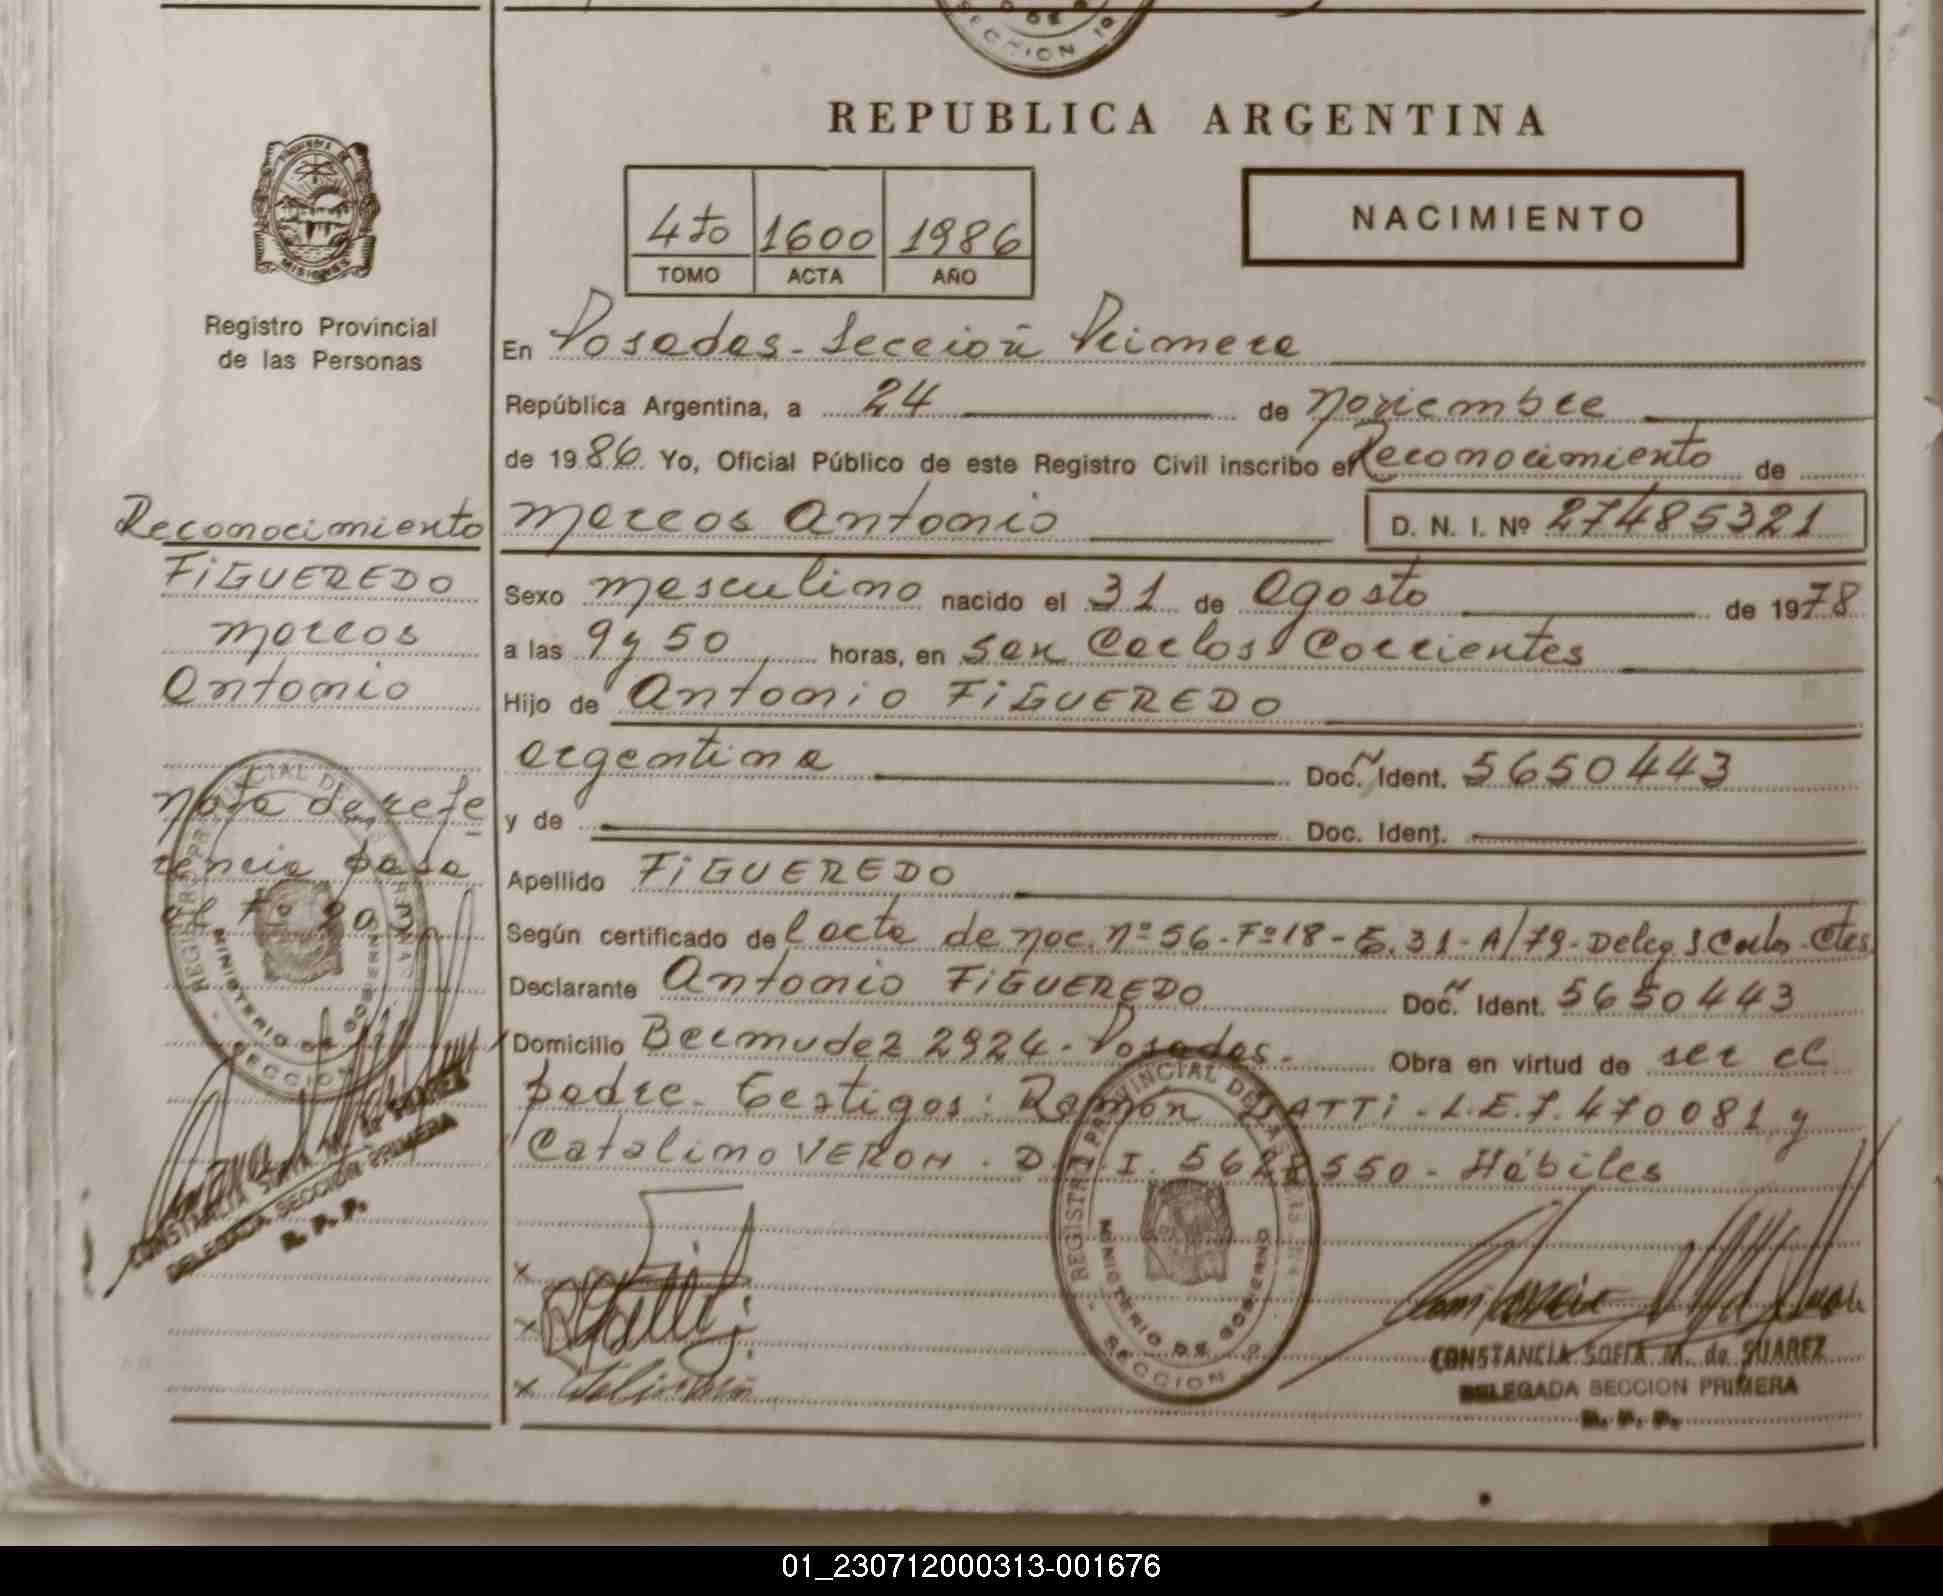 SECCION 1º
REPUBLICA ARGENTINA
NACIMIENTO
4to 1600 1986
TOMO ACTA AÑO
MISIONES
Registro Provincial
de las Personas
En Posadas - Sección Primera
República Argentina, a 24 de noviembre
de 1986 Yo, Oficial Público de este Registro Civil inscribo el Reconocimiento de
Marcos Antonio D. N. I. Nº 27485321
Sexo masculino nacido el 31 de Agosto de 1978
a las 9 y 50 horas, en San Carlos Corrientes
Hijo de Antonio FIGUEREDO
argentina Doc. Ident. 5650443
y de Doc. Ident.
Apellido FIGUEREDO
Según certificado del acta de nac. nº 56 - Fº 18 - E. 31 - A/79 - Deleg S Carlos - Ctes
Declarante Antonio FIGUEREDO Doc. Ident. 5650443
Domicilio Bermudez 2924 - Posadas - Obra en virtud de ser el
padre - Testigos: Ramón GATTI - L.E. 7.470081 y
Catalino VERON - D.N.I. 5628550 - Hábiles
Reconocimiento
FIGUEREDO
Marcos
Antonio
nota de refe
rencia pasa
al Fº
REGISTRO PROVINCIAL DE LAS PERSONAS
MINISTERIO DE GOBIERNO
SECCION
CONSTANCIA SOFIA M. de SUAREZ
DELEGADA SECCION PRIMERA
R. P. P.
REGISTRO PROVINCIAL DE LAS PERSONAS
MINISTERIO DE GOBIERNO
SECCION
CONSTANCIA SOFIA M. de SUAREZ
DELEGADA SECCION PRIMERA
R. P. P.
01_230712000313-001676